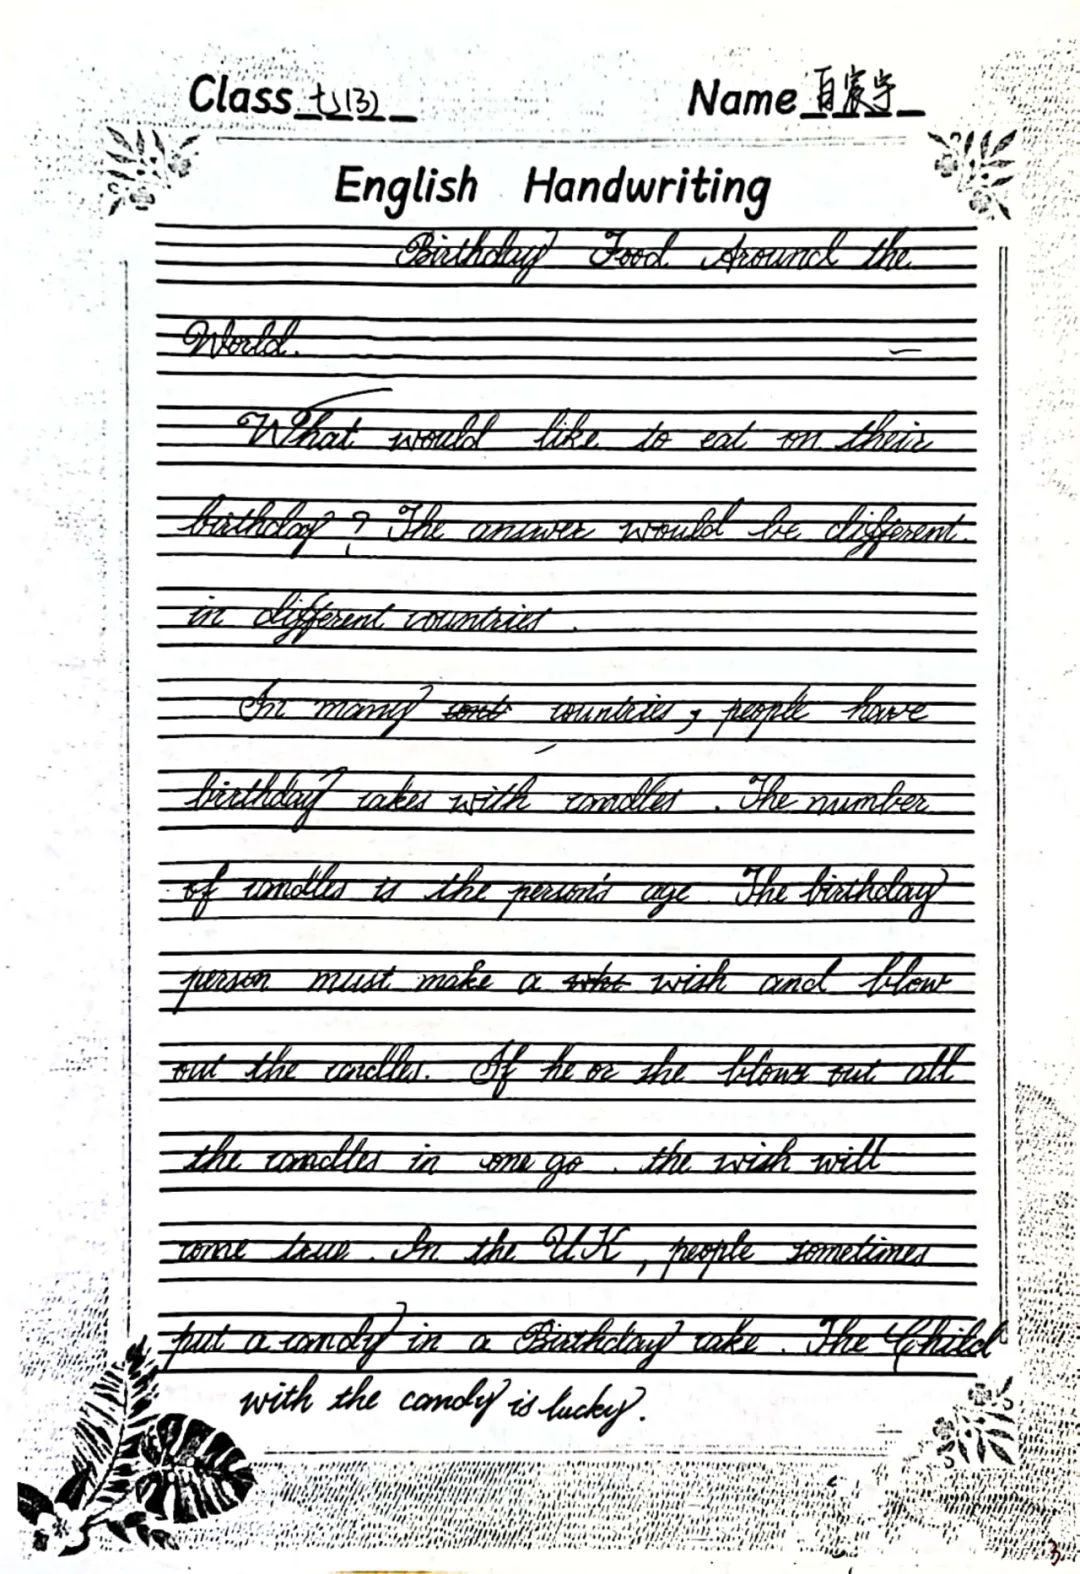 Class 七(3) Name 百宸宇
English Handwriting
Birthday Food Around the
World.
What would like to eat on their
birthday? The answer would be different
in different countries.
In many countries, people have
birthday cakes with candles. The number
of candles is the person's age. The birthday
person must make a wish and blow
out the candles. If he or she blows out all
the candles in one go. the wish will
come true. In the UK, people sometimes
put a candy in a Birthday cake. The Child
with the candy is lucky.
3